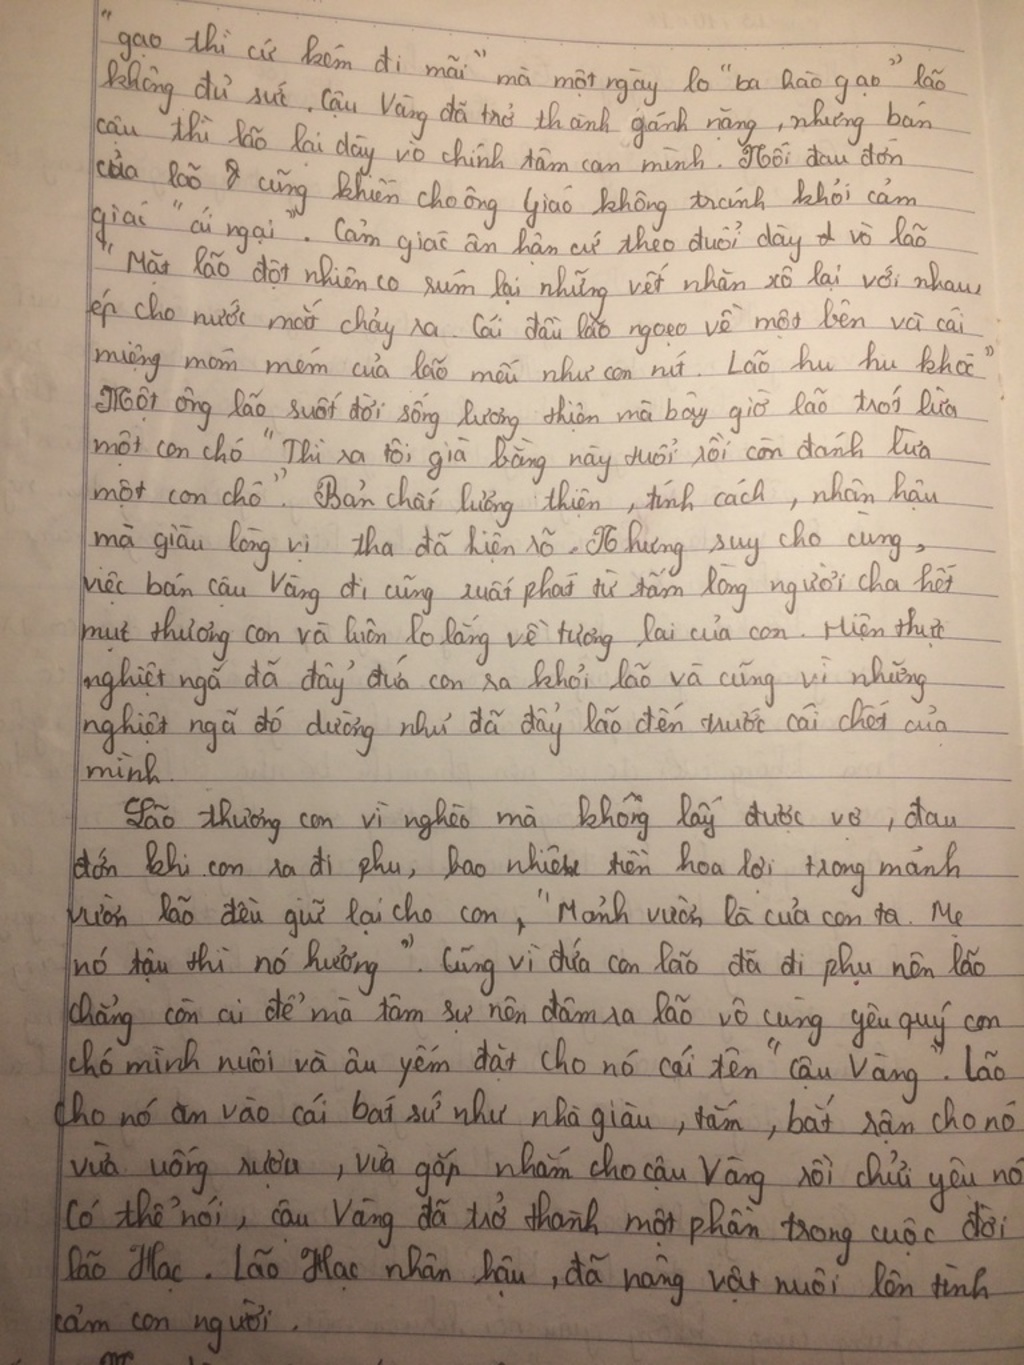 "gạo thì cứ kém đi mãi" mà một ngày lo "ba hào gạo" lão
không đủ sức. Cậu Vàng đã trở thành gánh nặng, nhưng bán
cậu thì lão lại dày vò chính tâm can mình. Nỗi đau đớn
của lão cũng khiến cho ông Giáo không tránh khỏi cảm
giác "ái ngại". Cảm giác ân hận cứ theo đuổi dày vò lão
"Mặt lão đột nhiên co rúm lại những vết nhăn xô lại với nhau,
ép cho nước mắt chảy ra. Cái đầu lão ngoẹo về một bên và cái
miệng móm mém của lão mếu như con nít. Lão hu hu khóc"
Một ông lão suốt đời sống lương thiện mà bây giờ lão trót lừa
một con chó "Thì ra tôi già bằng này tuổi rồi còn đánh lừa
một con chó". Bản chất lương thiện, tính cách, nhân hậu
mà giàu lòng vị tha đã hiện rõ. Nhưng suy cho cùng,
việc bán cậu Vàng đi cũng xuất phát từ tấm lòng người cha hết
mực thương con và luôn lo lắng về tương lai của con. Hiện thực
nghiệt ngã đã đẩy đứa con ra khỏi lão và cũng vì những
nghiệt ngã đó dường như đã đẩy lão đến trước cái chết của
mình.
Lão thương con vì nghèo mà không lấy được vợ, đau
đớn khi con ra đi phu, bao nhiêu tiền hoa lợi trong mảnh
vườn lão đều giữ lại cho con, "Mảnh vườn là của con ta. Mẹ
nó tậu thì nó hưởng". Cũng vì đứa con lão đã đi phụ nên lão
chẳng còn ai để mà tâm sự nên đâm ra lão vô cùng yêu quý con
chó mình nuôi và âu yếm đặt cho nó cái tên "cậu Vàng". Lão
cho nó ăn vào cái bát sứ như nhà giàu, tắm, bắt rận cho nó
vừa uống rượu, vừa gắp nhắm cho cậu Vàng rồi chửi yêu nó
Có thể nói, cậu Vàng đã trở thành một phần trong cuộc đời
lão Hạc. Lão Hạc nhân hậu, đã nâng vật nuôi lên tình
cảm con người.